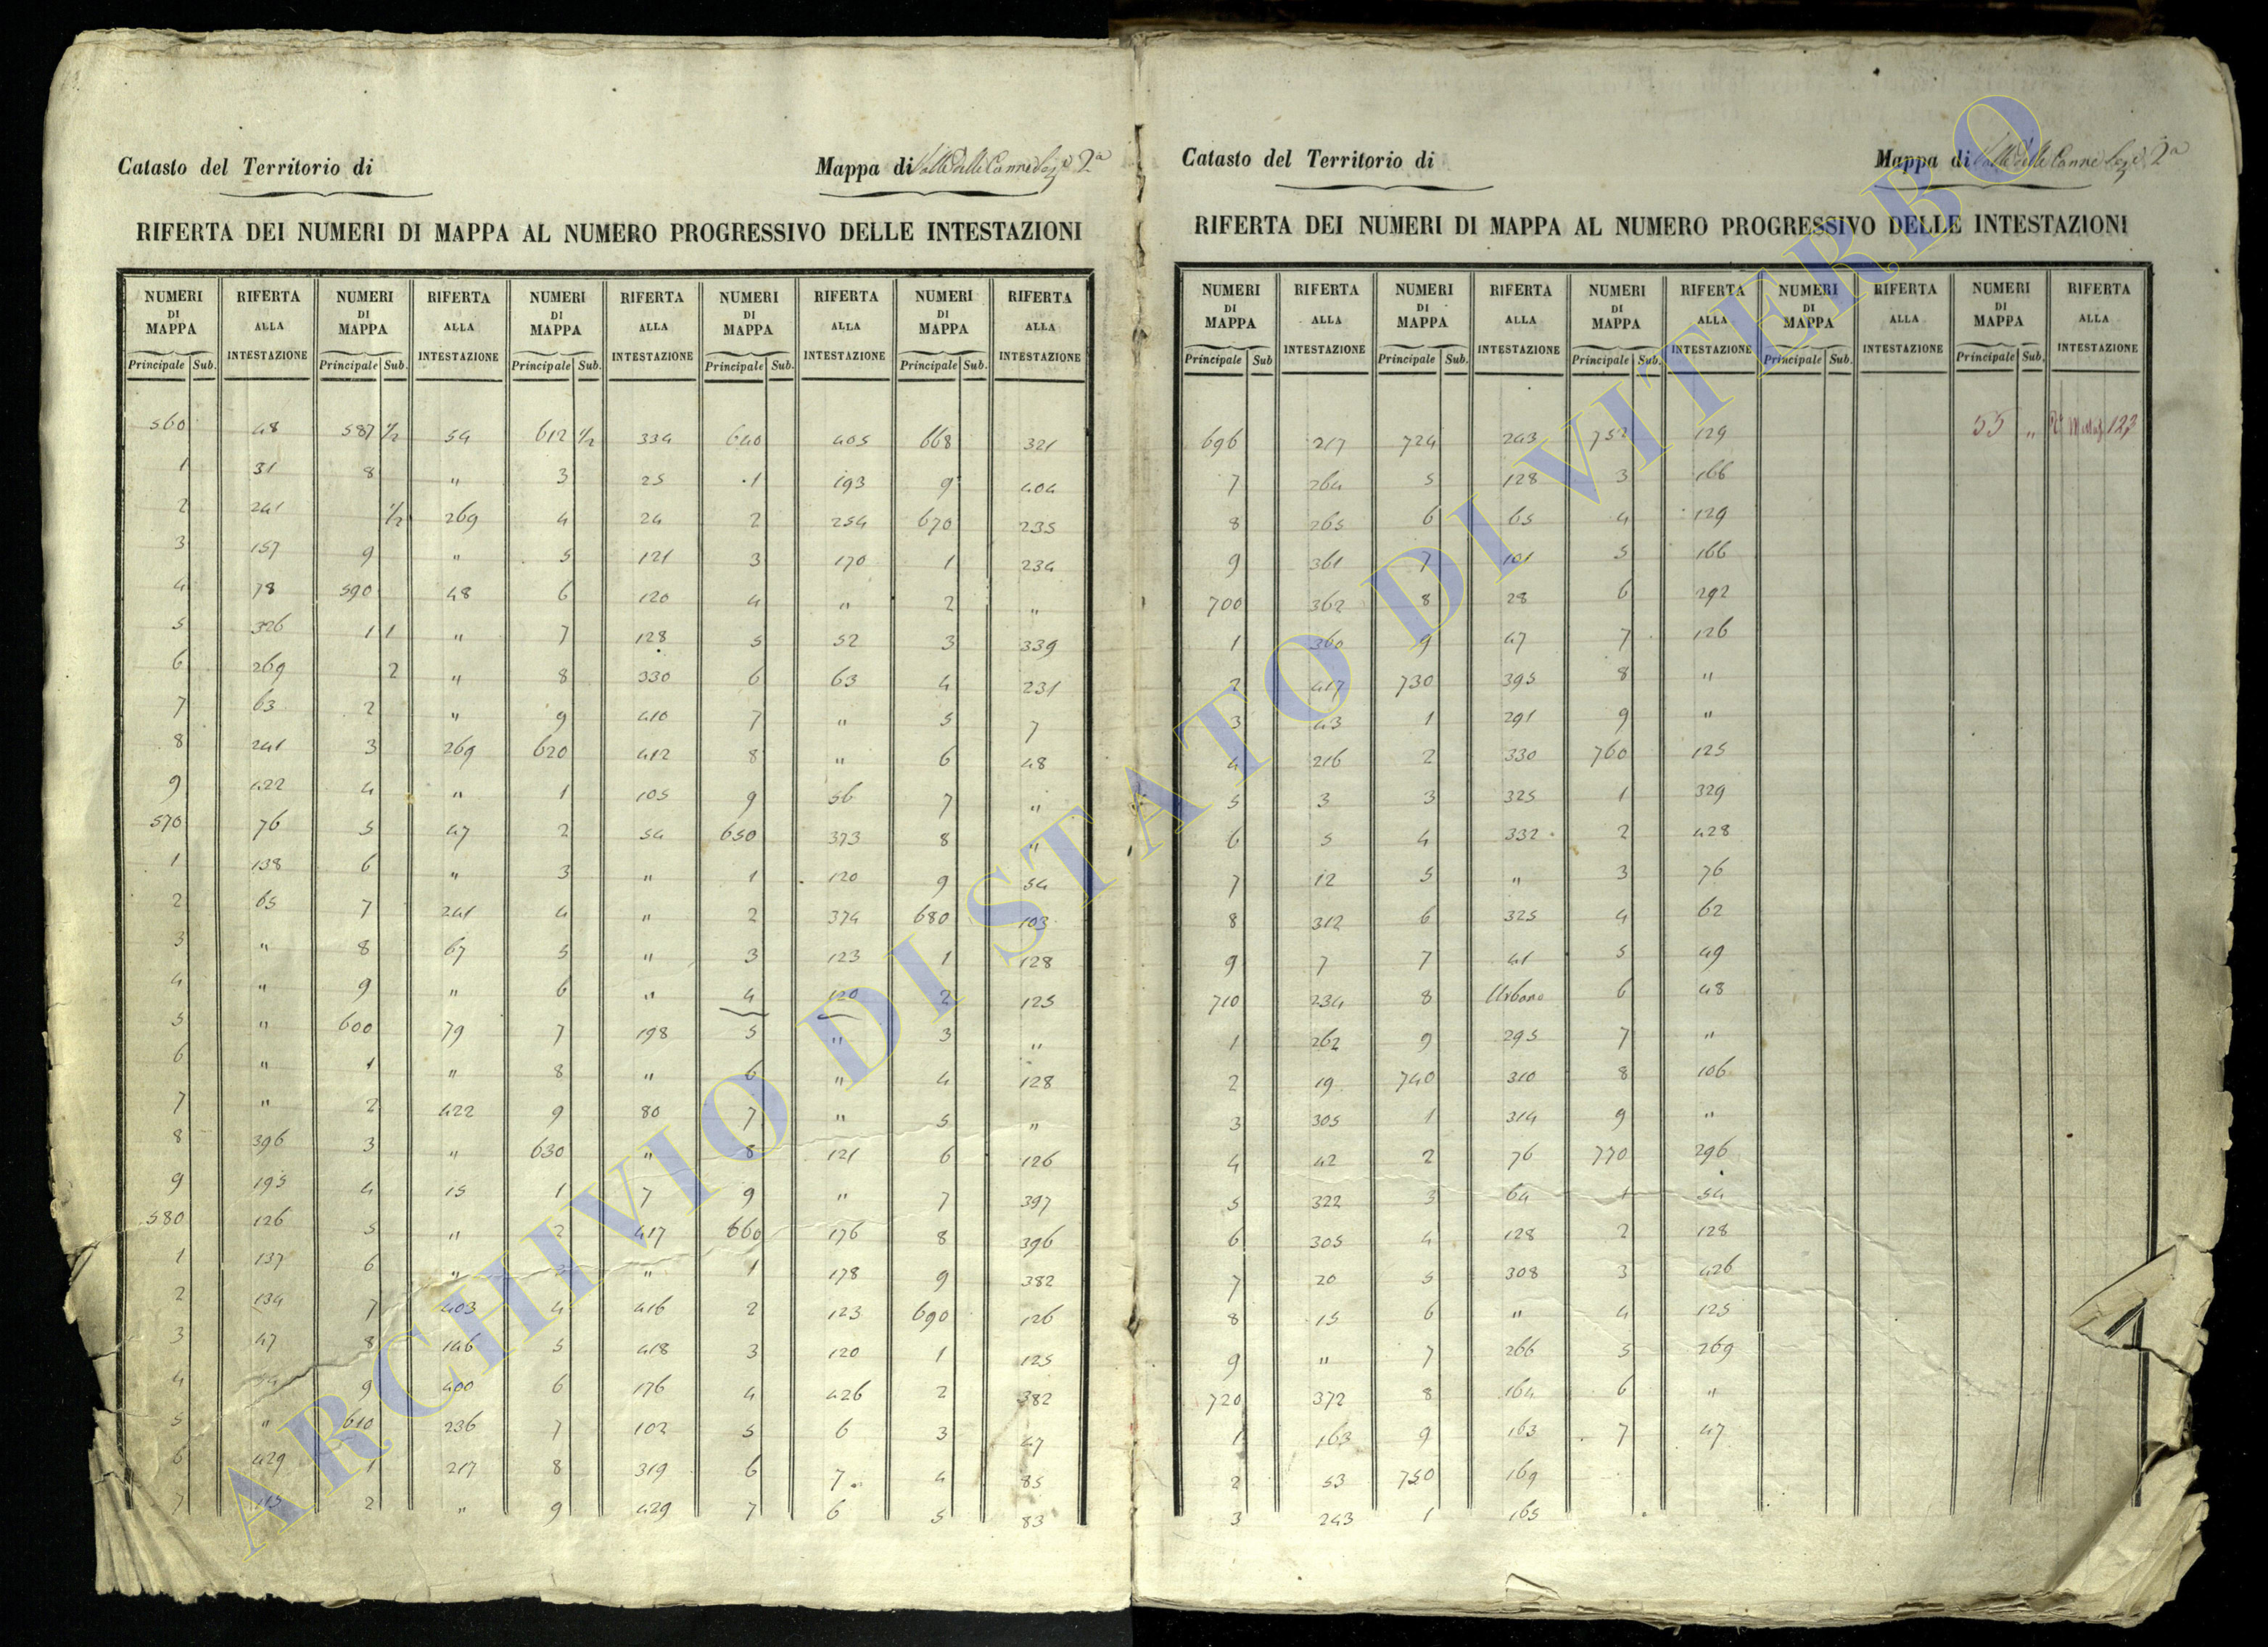 Catasto del Territorio di
Mappa di Valle delle Canne Sez.e 2a
RIFERTA DEI NUMERI DI MAPPA AL NUMERO PROGRESSIVO DELLE INTESTAZIONI
NUMERI DI MAPPA RIFERTA ALLA INTESTAZIONE NUMERI DI MAPPA RIFERTA ALLA INTESTAZIONE NUMERI DI MAPPA RIFERTA ALLA INTESTAZIONE NUMERI DI MAPPA RIFERTA ALLA INTESTAZIONE NUMERI DI MAPPA RIFERTA ALLA INTESTAZIONE
Principale Sub. Principale Sub. Principale Sub. Principale Sub. Principale Sub.
560 48 587 1/2 54 612 1/2 334 640 405 668 321
1 31 8 " 3 25 1 193 9 404
2 241 1/2 269 4 24 2 254 670 235
3 157 9 " 5 121 3 170 1 234
4 78 590 48 6 120 4 " 2 "
5 326 1 1 " 7 128 5 52 3 339
6 269 2 " 8 330 6 63 4 231
7 63 2 " 9 410 7 " 5 7
8 241 3 269 620 412 8 " 6 48
9 422 4 " 1 105 9 56 7 "
570 76 5 47 2 54 650 373 8 "
1 138 6 " 3 " 1 120 9 54
2 65 7 241 4 " 2 374 680 103
3 " 8 67 5 " 3 123 1 128
4 " 9 " 6 " 4 120 2 125
5 " 600 79 7 198 5 " 3 "
6 " 1 " 8 " 6 " 4 128
7 " 2 422 9 80 7 " 5 "
8 396 3 " 630 " 8 121 6 126
9 195 4 15 1 7 9 " 7 397
580 126 5 " 2 417 660 176 8 396
1 137 6 " 3 " 1 178 9 382
2 134 7 403 4 416 2 123 690 126
3 47 8 146 5 418 3 120 1 125
4 54 9 400 6 176 4 426 2 382
5 " 610 236 7 102 5 6 3 47
6 429 1 217 8 319 6 7 4 85
7 115 2 " 9 429 7 6 5 83
Catasto del Territorio di
Mappa di Valle delle Canne Sez.e 2a
RIFERTA DEI NUMERI DI MAPPA AL NUMERO PROGRESSIVO DELLE INTESTAZIONI
NUMERI DI MAPPA RIFERTA ALLA INTESTAZIONE NUMERI DI MAPPA RIFERTA ALLA INTESTAZIONE NUMERI DI MAPPA RIFERTA ALLA INTESTAZIONE NUMERI DI MAPPA RIFERTA ALLA INTESTAZIONE NUMERI DI MAPPA RIFERTA ALLA INTESTAZIONE
Principale Sub Principale Sub. Principale Sub. Principale Sub. Principale Sub.
696 217 724 243 752 129 55 " 123
7 264 5 128 3 166
8 265 6 65 4 129
9 361 7 101 5 166
700 362 8 28 6 292
1 360 9 47 7 126
2 417 730 395 8 "
3 43 1 291 9 "
4 216 2 330 760 125
5 3 3 325 1 329
6 5 4 332 2 428
7 12 5 " 3 76
8 312 6 325 4 62
9 7 7 41 5 49
710 234 8 Urbano 6 48
1 262 9 295 7 "
2 19 740 310 8 106
3 305 1 314 9 "
4 42 2 76 770 296
5 322 3 64 1 54
6 305 4 128 2 128
7 20 5 308 3 426
8 15 6 " 4 125
9 " 7 266 5 269
720 372 8 164 6 "
1 163 9 163 7 47
2 53 750 169
3 243 1 165
ARCHIVIO DI STATO DI VITERBO